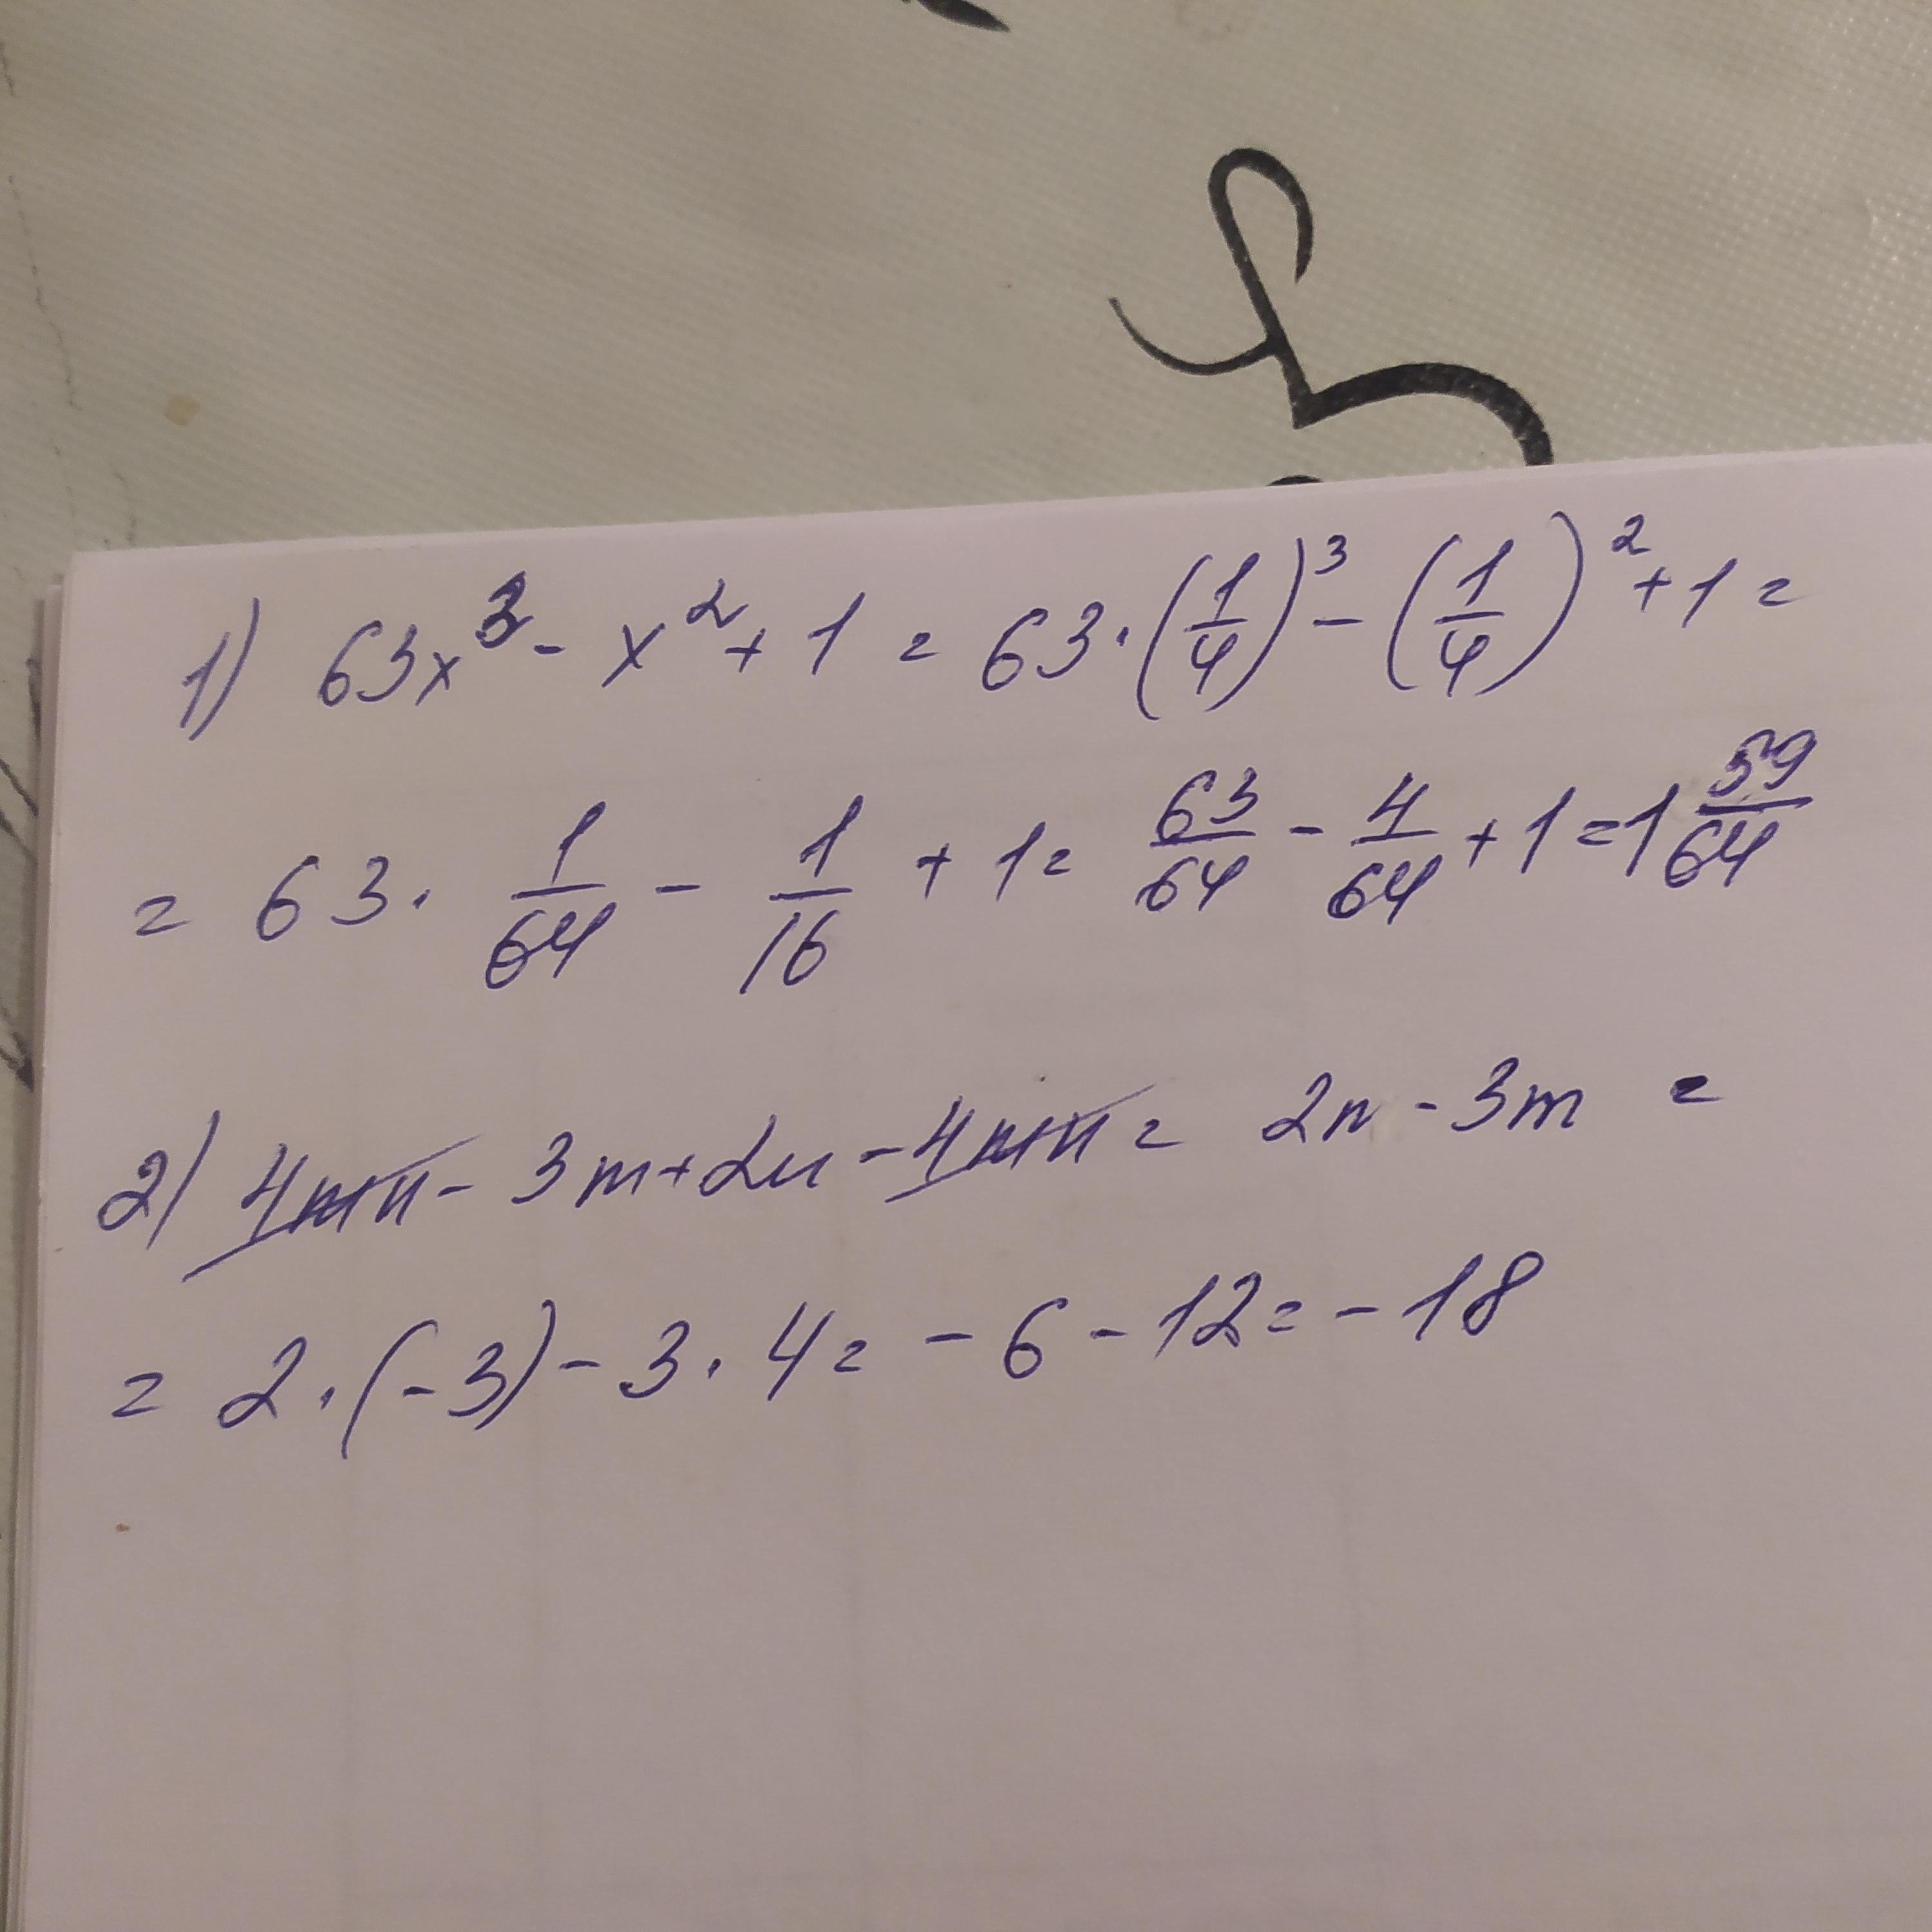 1) 63x³ - x² + 1 = 63·(1/4)³ - (1/4)² + 1 =
= 63 · 1/64 - 1/16 + 1 = 63/64 - 4/64 + 1 = 1 59/64
2) 4mn - 3m + 2n - 4mn = 2n - 3m =
= 2·(-3) - 3·4 = -6 - 12 = -18